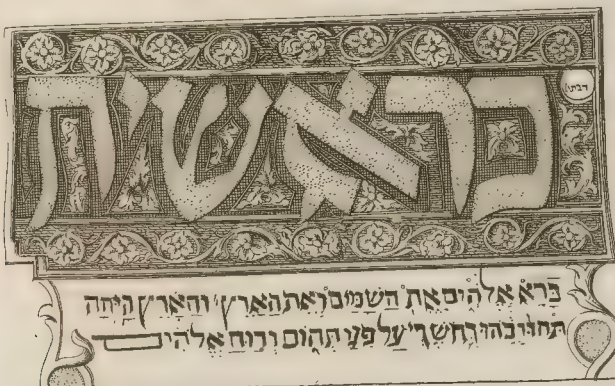 בראשית
ברא אלהים את השמים ואת הארץ והארץ היתה
תהו ובהו וחשך על פני תהום ורוח אלהים